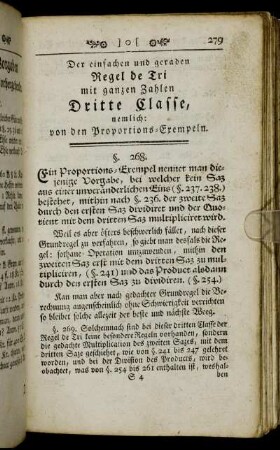 ]o[ 279
Der einfachen und geraden
Regel de Tri
mit ganzen Zahlen
Dritte Classe,
nemlich:
von den Proportions-Exempeln.
§. 268.
Ein Proportions-Exempel nennet man die-
jenige Vorgabe, bei welcher kein Saz
aus einer unveränderlichen Eins (§. 237. 238.)
bestehet, mithin nach §. 236. der zweite Saz
durch den ersten Saz dividiret und der Quo-
tient mit dem dritten Saz multipliciret wird.
Weil es aber öfters beschwerlich fället, nach dieser
Grundregel zu verfahren, so giebt man desfals die Re-
gel: sothane Operation umzuwenden, mithin den
zweiten Saz erst mit dem dritten Saz zu mul-
tipliciren, (§. 241) und das Product alsdann
durch den ersten Saz zu dividiren (§. 254.)
Kan man aber nach gedachter Grundregel die Be-
rechnung augenscheinlich ohne Schwierigkeit verrichten
so bleibet solche allezeit der beste und nächste Weeg.
§. 269. Solchemnach sind bei dieser dritten Classe der
Regel de Tri keine besondere Regeln vorhanden, sondern
die gedachte Multiplication des zweiten Sazes, mit dem
dritten Saze geschiehet, wie von §. 241 bis 247 gelehret
worden, und bei der Division des Products, wird be-
obachtet, was von §. 254 bis 261 enthalten ist, weshal-
S 4 ben